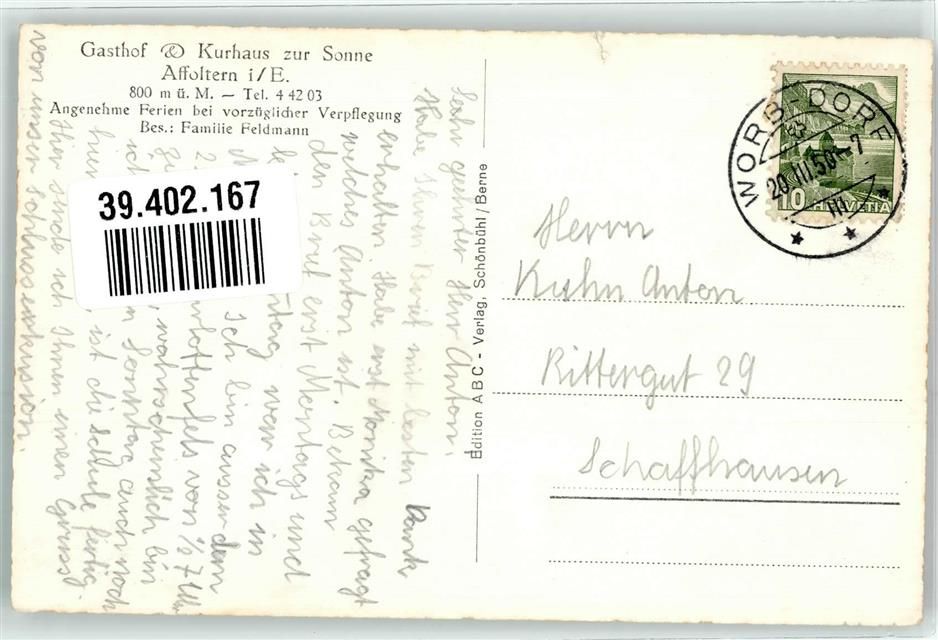 Gasthof & Kurhaus zur Sonne
Affoltern i/E.
800 m ü. M. — Tel. 4 42 03
Angenehme Ferien bei vorzüglicher Verpflegung
Bes.: Familie Feldmann
39.402.167
Sehr geehrter Herr Anton!
Habe Ihren Brief mit besten Dank
erhalten. Habe erst Monika gefragt
welches Anton ist. Bekam
den Brief erst Montags und
war ich in
Ich bin ausser dem
von ½ 7 Uhr
wahrscheinlich bin
ich Sonntag auch noch
hier, ist die Schule fertig.
Hier sende ich Ihnen einen Gruss
von unser Schlussexkursion.
Edition ABC - Verlag, Schönbühl / Berne
WORB-DORF
20.III.50.-7
10 HELVETIA
Herrn
Kuhn Anton
Rittergut 29
Schaffhausen